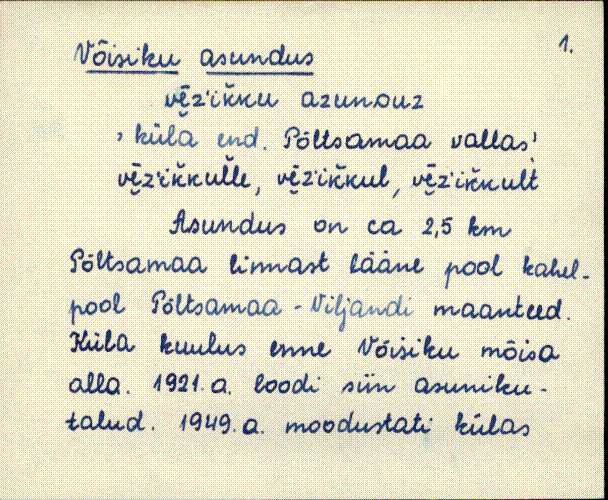 1.
Võisiku asundus
vēzʻikku azunᴅuz
‚küla end. Põltsamaa vallas’
vēzʻikkulle, vēzʻikkul, vēzʻikkult
Asundus on ca 2,5 km
Põltsamaa linnast lääne pool kahel-
pool Põltsamaa-Viljandi maanteed.
Küla kuulus enne Võisiku mõisa
alla. 1921. a. loodi siin asuniku-
talud. 1949. a. moodustati külas